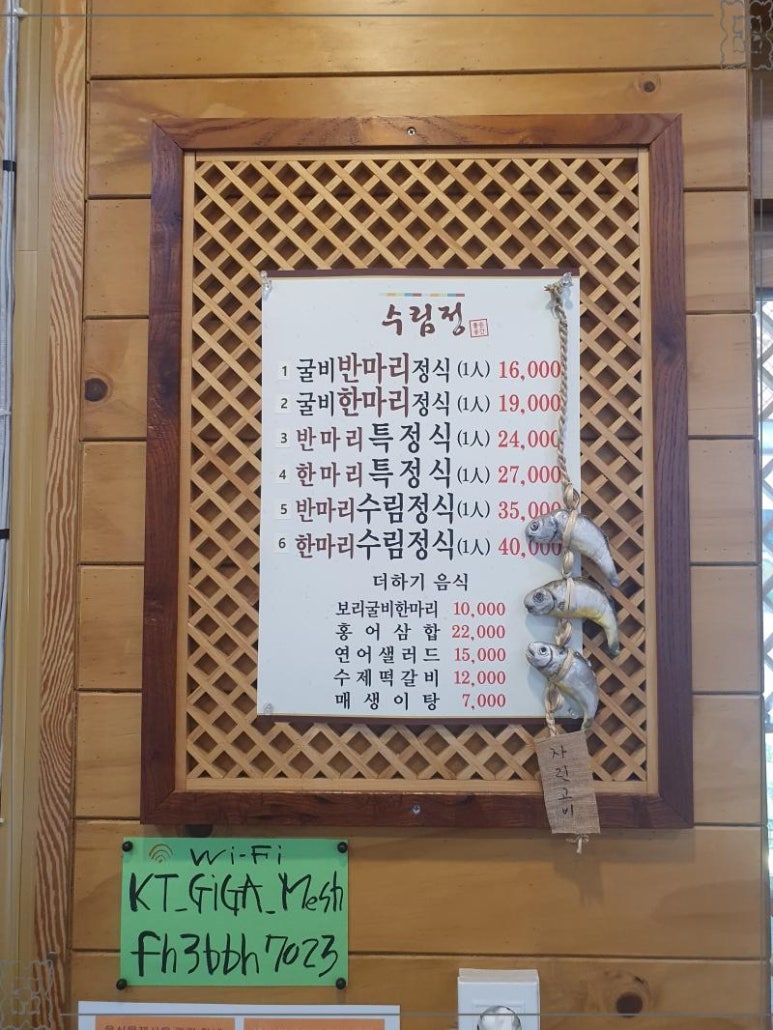 수림정
1 굴비반마리정식(1人) 16,000
2 굴비한마리정식(1人) 19,000
3 반마리특정식(1人) 24,000
4 한마리특정식(1人) 27,000
5 반마리수림정식(1人) 35,000
6 한마리수림정식(1人) 40,000
더하기 음식
보리굴비한마리 10,000
홍어삼합 22,000
연어샐러드 15,000
수제떡갈비 12,000
매생이탕 7,000
자린고비
Wi-Fi
KT_GiGA_Mesh
fh3bbh7023